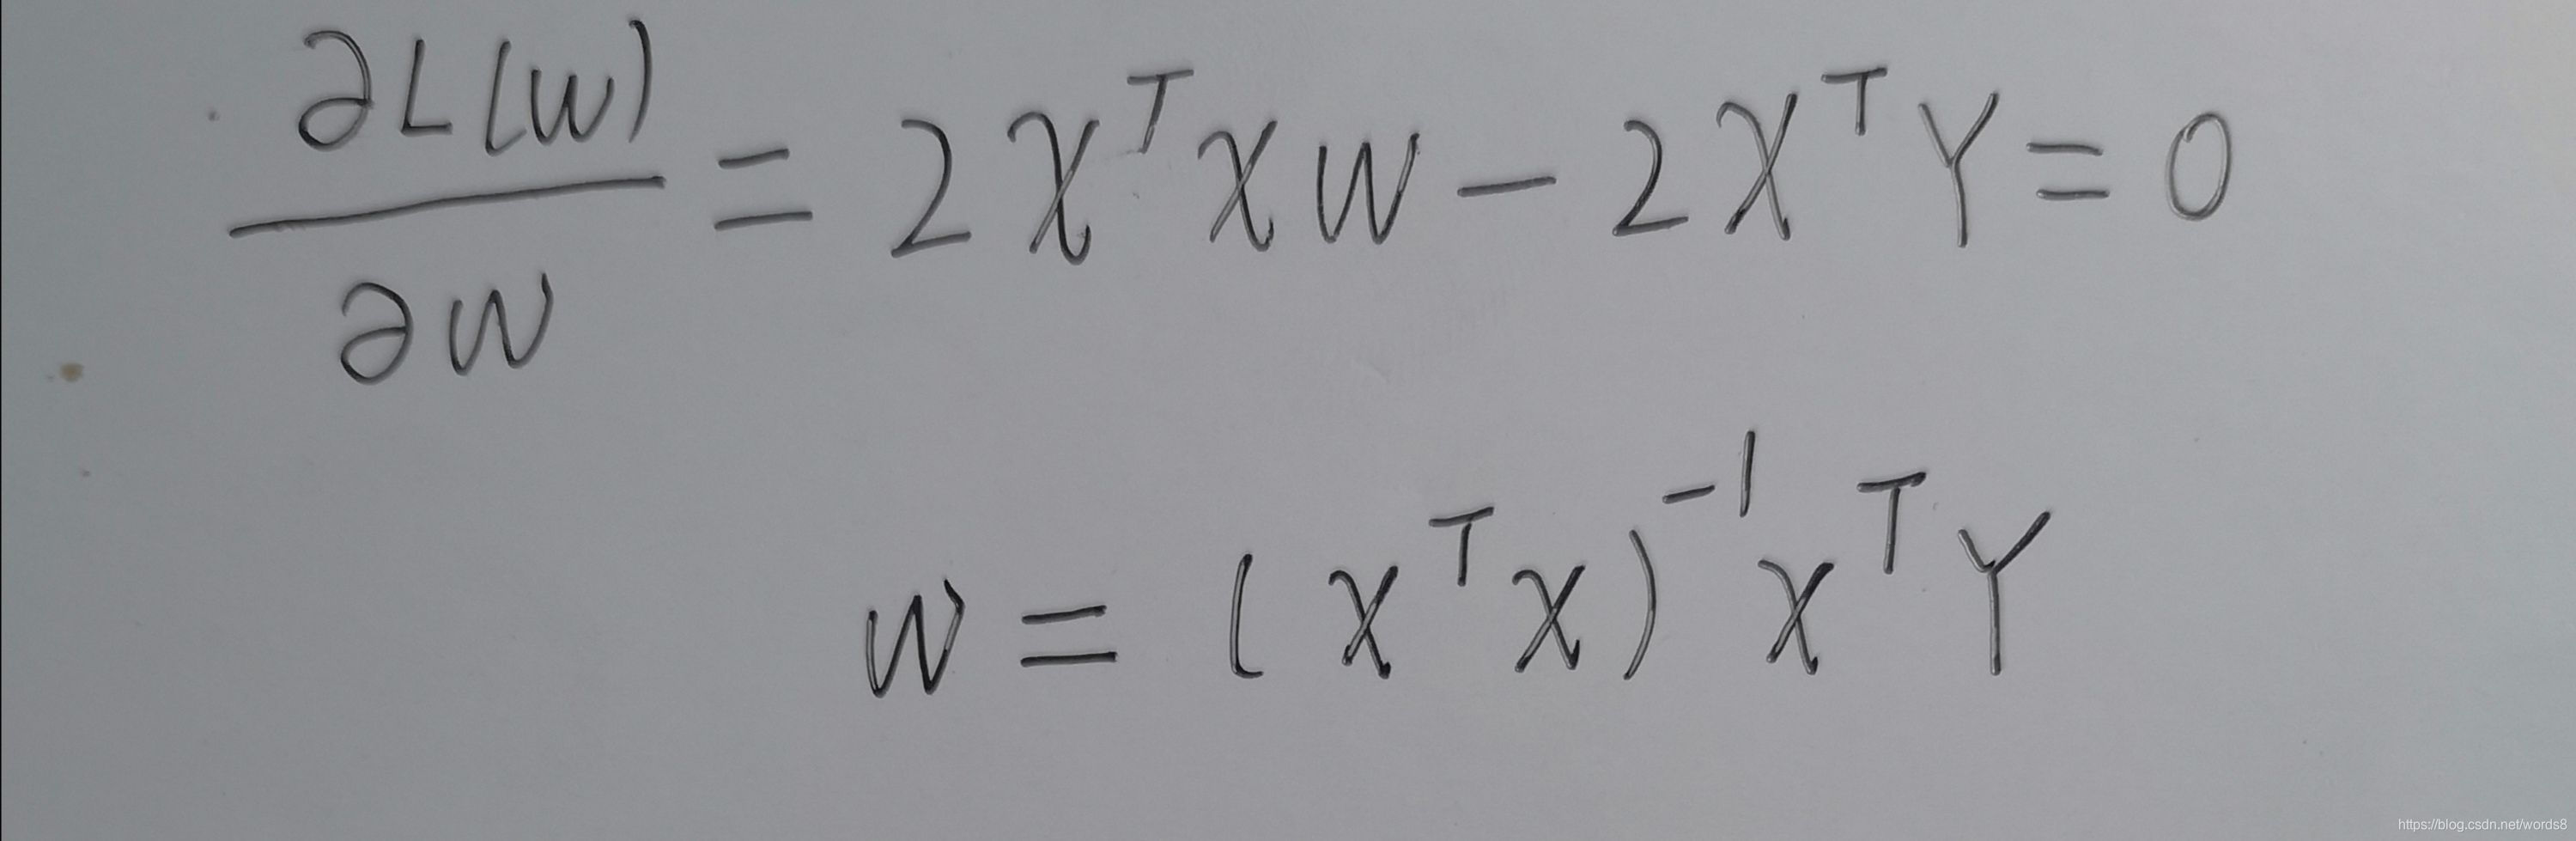 ∂L(W)/∂W = 2X^T X W − 2X^T Y = 0
W = (X^T X)^−1 X^T Y
https://blog.csdn.net/words8